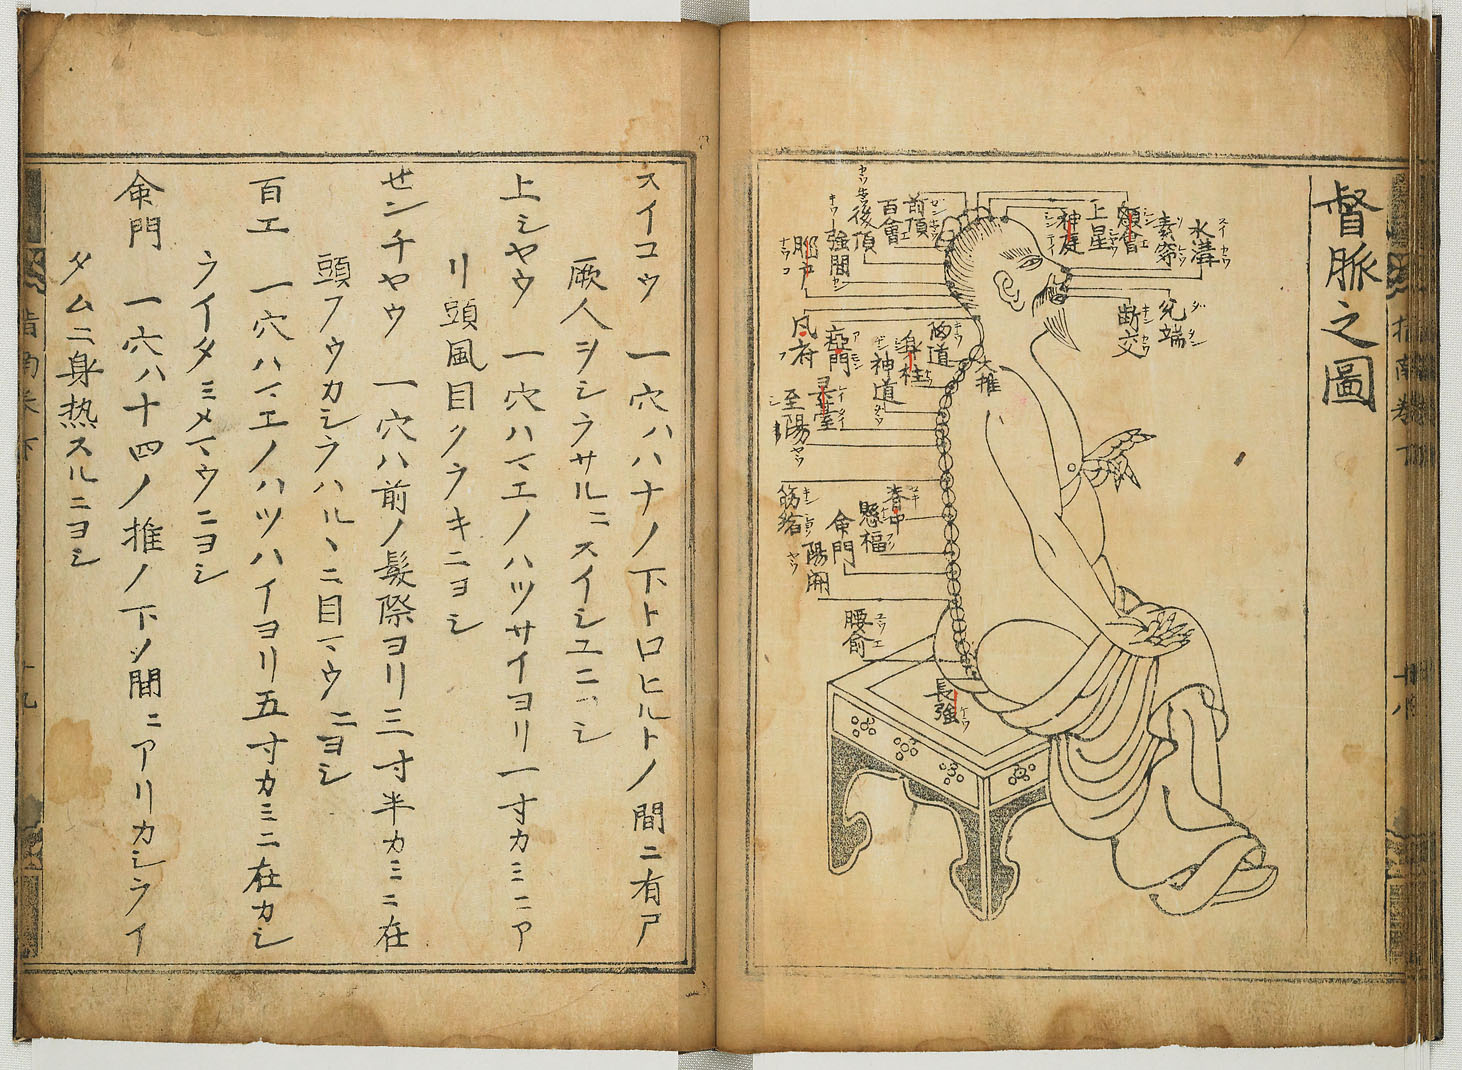 督脈之圖
水溝
素窌
顖會
上星
神庭
前頂
百會
後頂
強間
腦戸
兌端
断交
風府
瘂門
大推
陶道
身柱
神道
灵臺
至陽
筋縮
脊中
懸福
命門
陽関
腰俞
長強
スイコウ 一穴ハハナノ下トロヒルトノ間ニ有ア
厥人ヲシラサルニスイシユニ
上シヤウ 一穴ハマエノハツサイヨリ一寸カミニア
リ頭風目クラキニヨシ
せンチヤウ 一穴ハ前ノ髪際ヨリ三寸半カミニ在
頭フウカシラハルヽニ目マウニヨシ
百エ 一穴ハマエノハツハイヨリ五寸カミニ在カシ
ライタミメマウニヨシ
命門 一穴ハ十四ノ推ノ下ノ間ニアリカシライ
タムニ身热スルニヨシ